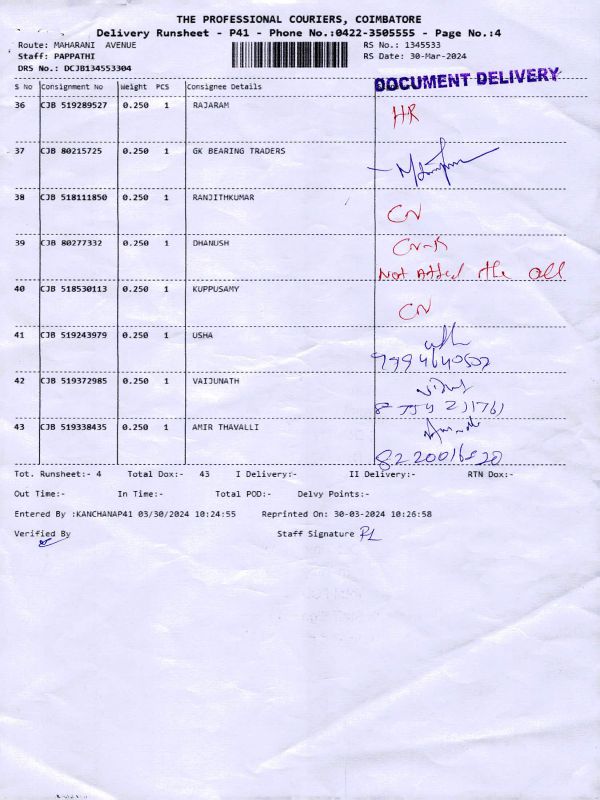 THE PROFESSIONAL COURIERS, COIMBATORE
Delivery Runsheet - P41 - Phone No.:0422-3505555 - Page No.:4
Route: MAHARANI AVENUE RS No.: 1345533
Staff: PAPPATHI RS Date: 30-Mar-2024
DRS No.: DCJB134553304
DOCUMENT DELIVERY
S No Consignment No Weight PCS Consignee Details
36 CJB 519289527 0.250 1 RAJARAM HR
37 CJB 80215725 0.250 1 GK BEARING TRADERS
38 CJB 518111850 0.250 1 RANJITHKUMAR CN
39 CJB 80277332 0.250 1 DHANUSH
Not Added the all
40 CJB 518530113 0.250 1 KUPPUSAMY CN
41 CJB 519243979 0.250 1 USHA
42 CJB 519372985 0.250 1 VAIJUNATH
43 CJB 519338435 0.250 1 AMIR THAVALLI
Tot. Runsheet:- 4 Total Dox:- 43 I Delivery:- II Delivery:- RTN Dox:-
Out Time:- In Time:- Total POD:- Delvy Points:-
Entered By :KANCHANAP41 03/30/2024 10:24:55 Reprinted On: 30-03-2024 10:26:58
Verified By Staff Signature